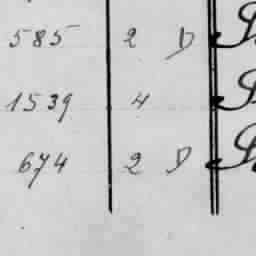 585 2 D
1539 4
674 2 D